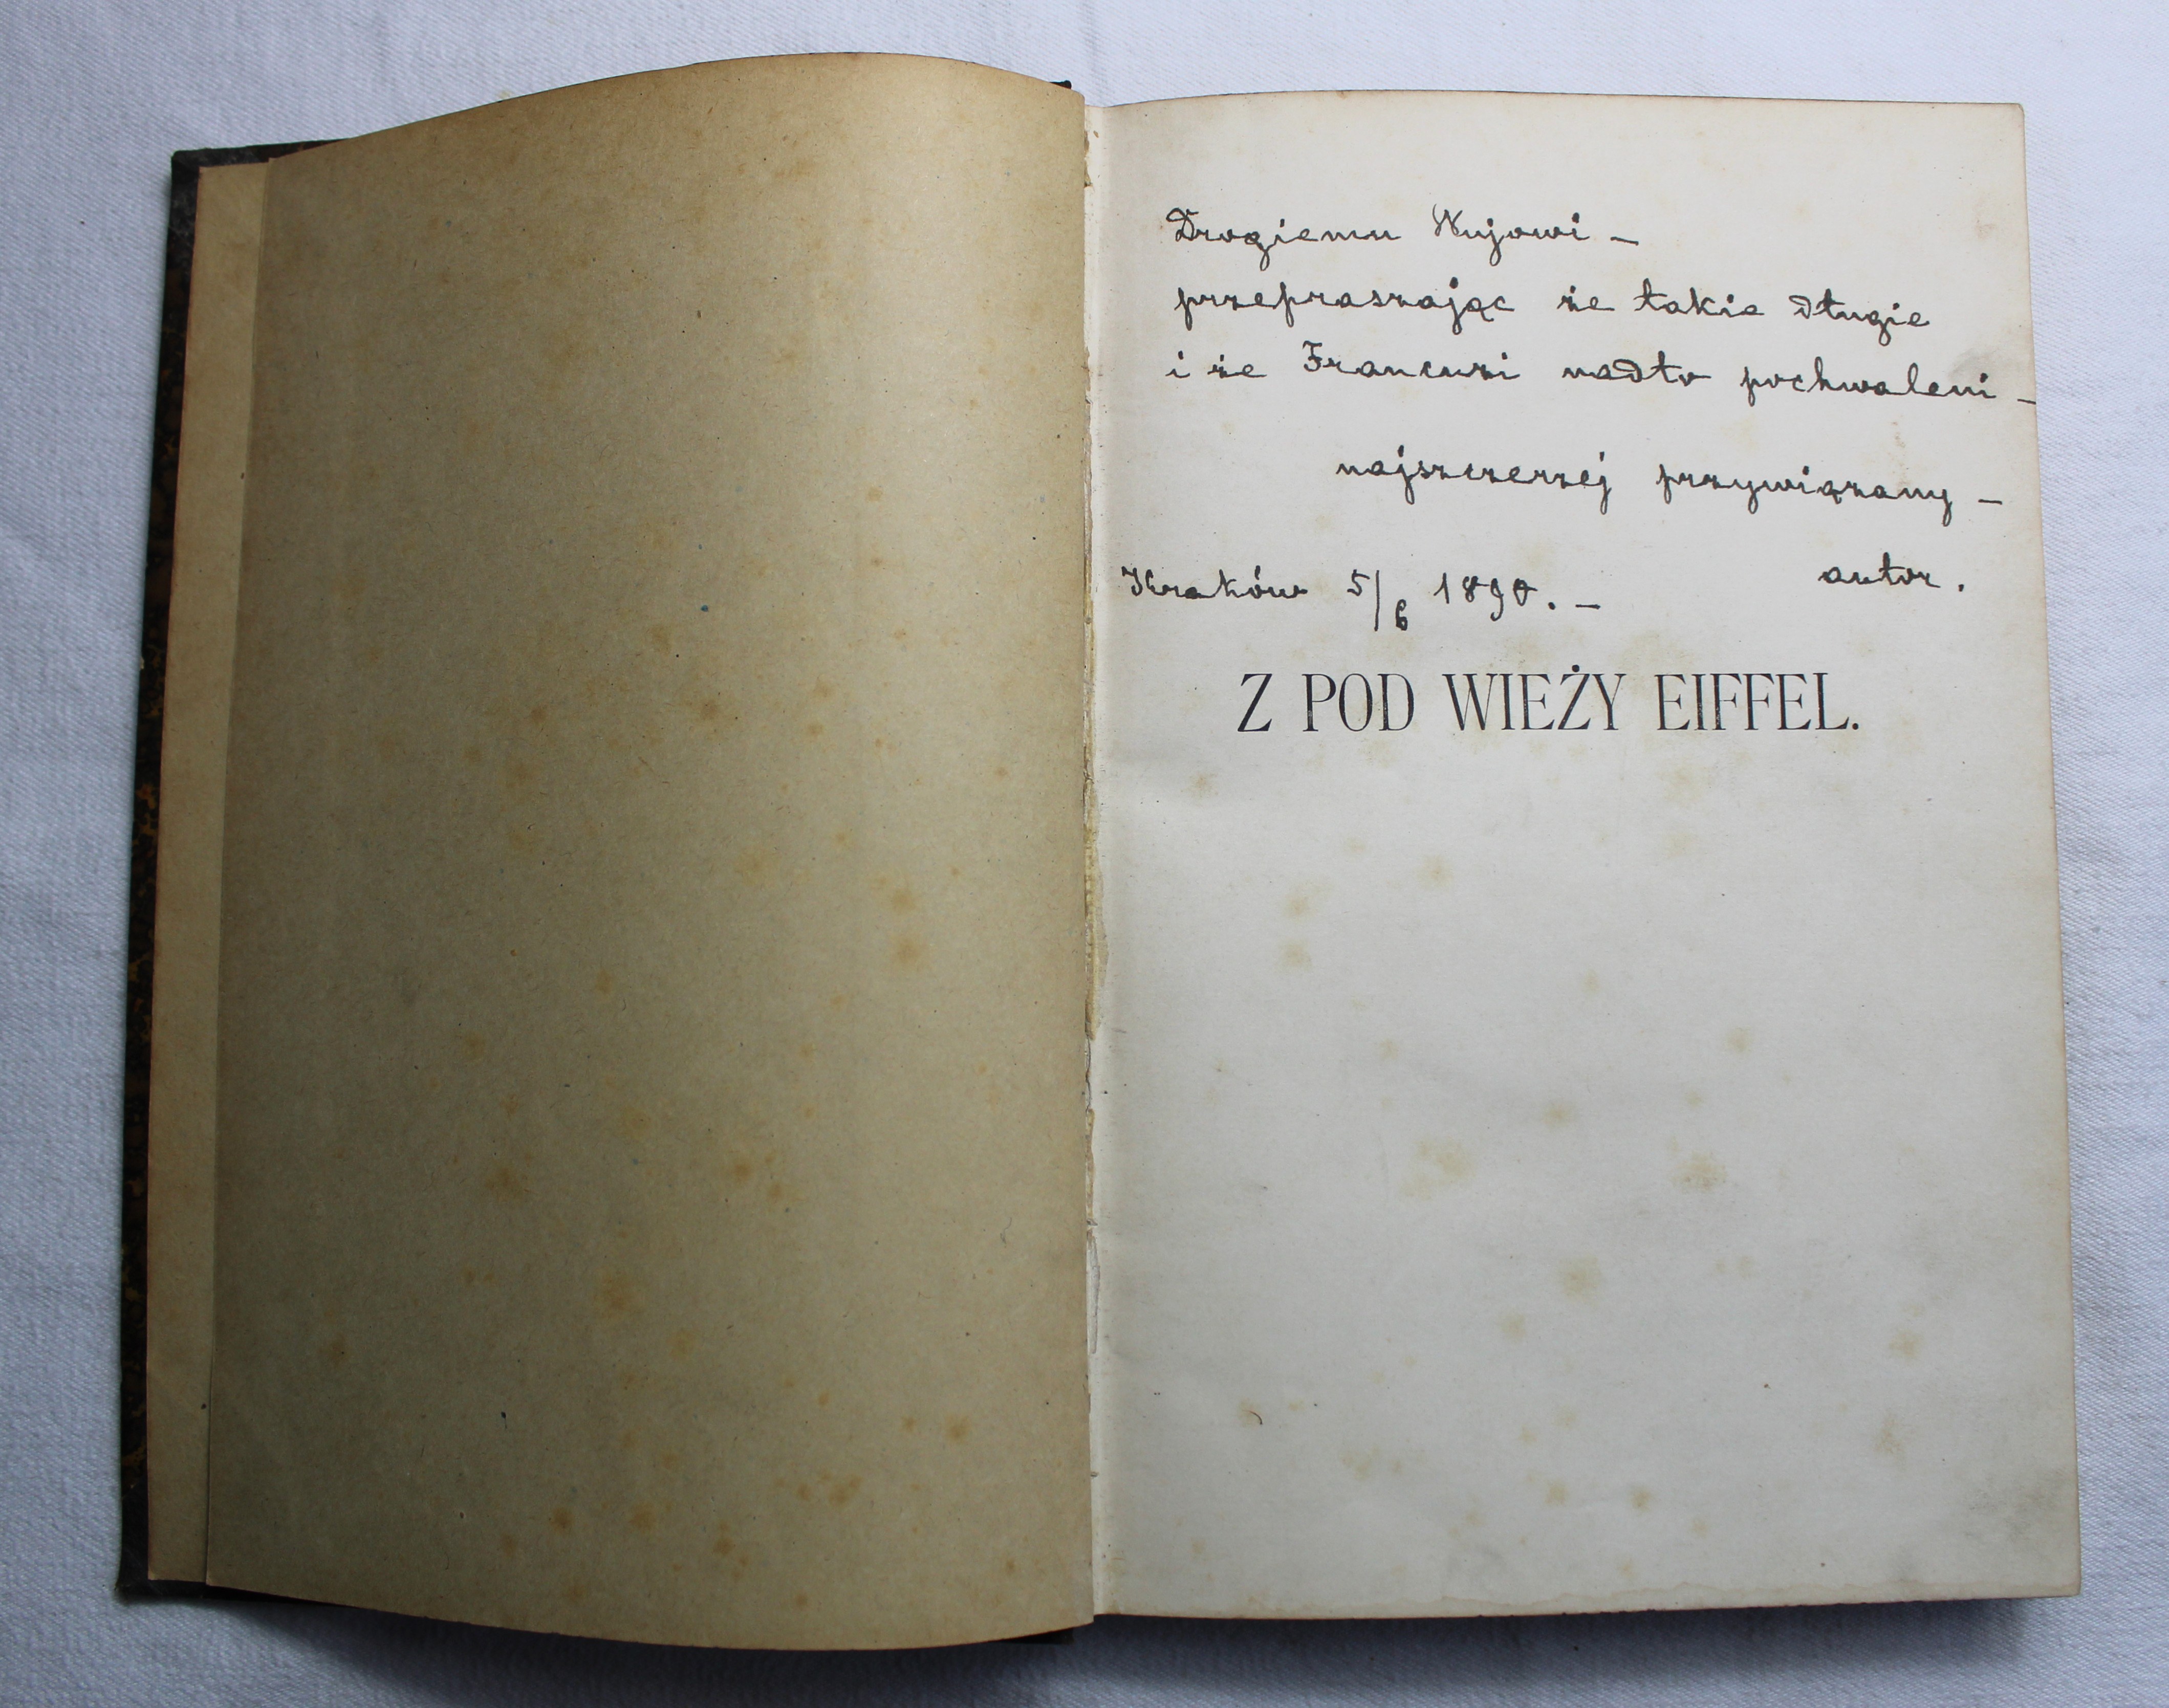 Drogiemu Wujowi –
przepraszając że takie długie
i że Francuzi nadto pochwaleni –
najszczerzej przywiązany –
autor.
Kraków 5/6 1890. –
Z POD WIEŻY EIFFEL.